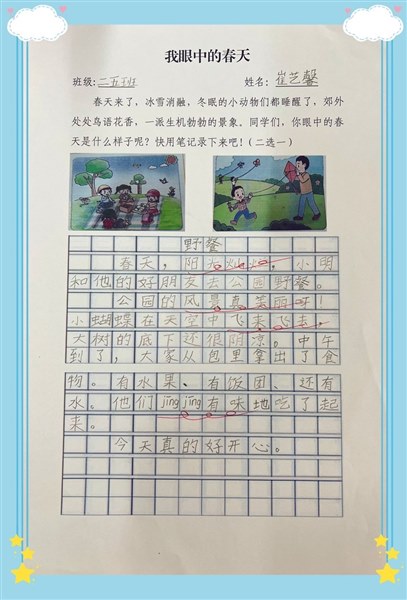 我眼中的春天
班级:二五班 姓名:崔艺馨
春天来了，冰雪消融，冬眠的小动物们都睡醒了，郊外
处处鸟语花香，一派生机勃勃的景象。同学们，你眼中的春
天是什么样子呢？快用笔记录下来吧!(二选一)
野餐
春天，阳光灿灿，小明
和他的好朋友去公园野餐。
公园的风景真美丽呀！
小蝴蝶在天空中飞来飞去，
大树的底下还很阴凉。中午
到了，大家从包里拿出了食
物。有水果、有饭团、还有
水。他们jīngjīng有味地吃了起
来。
今天真的好开心。